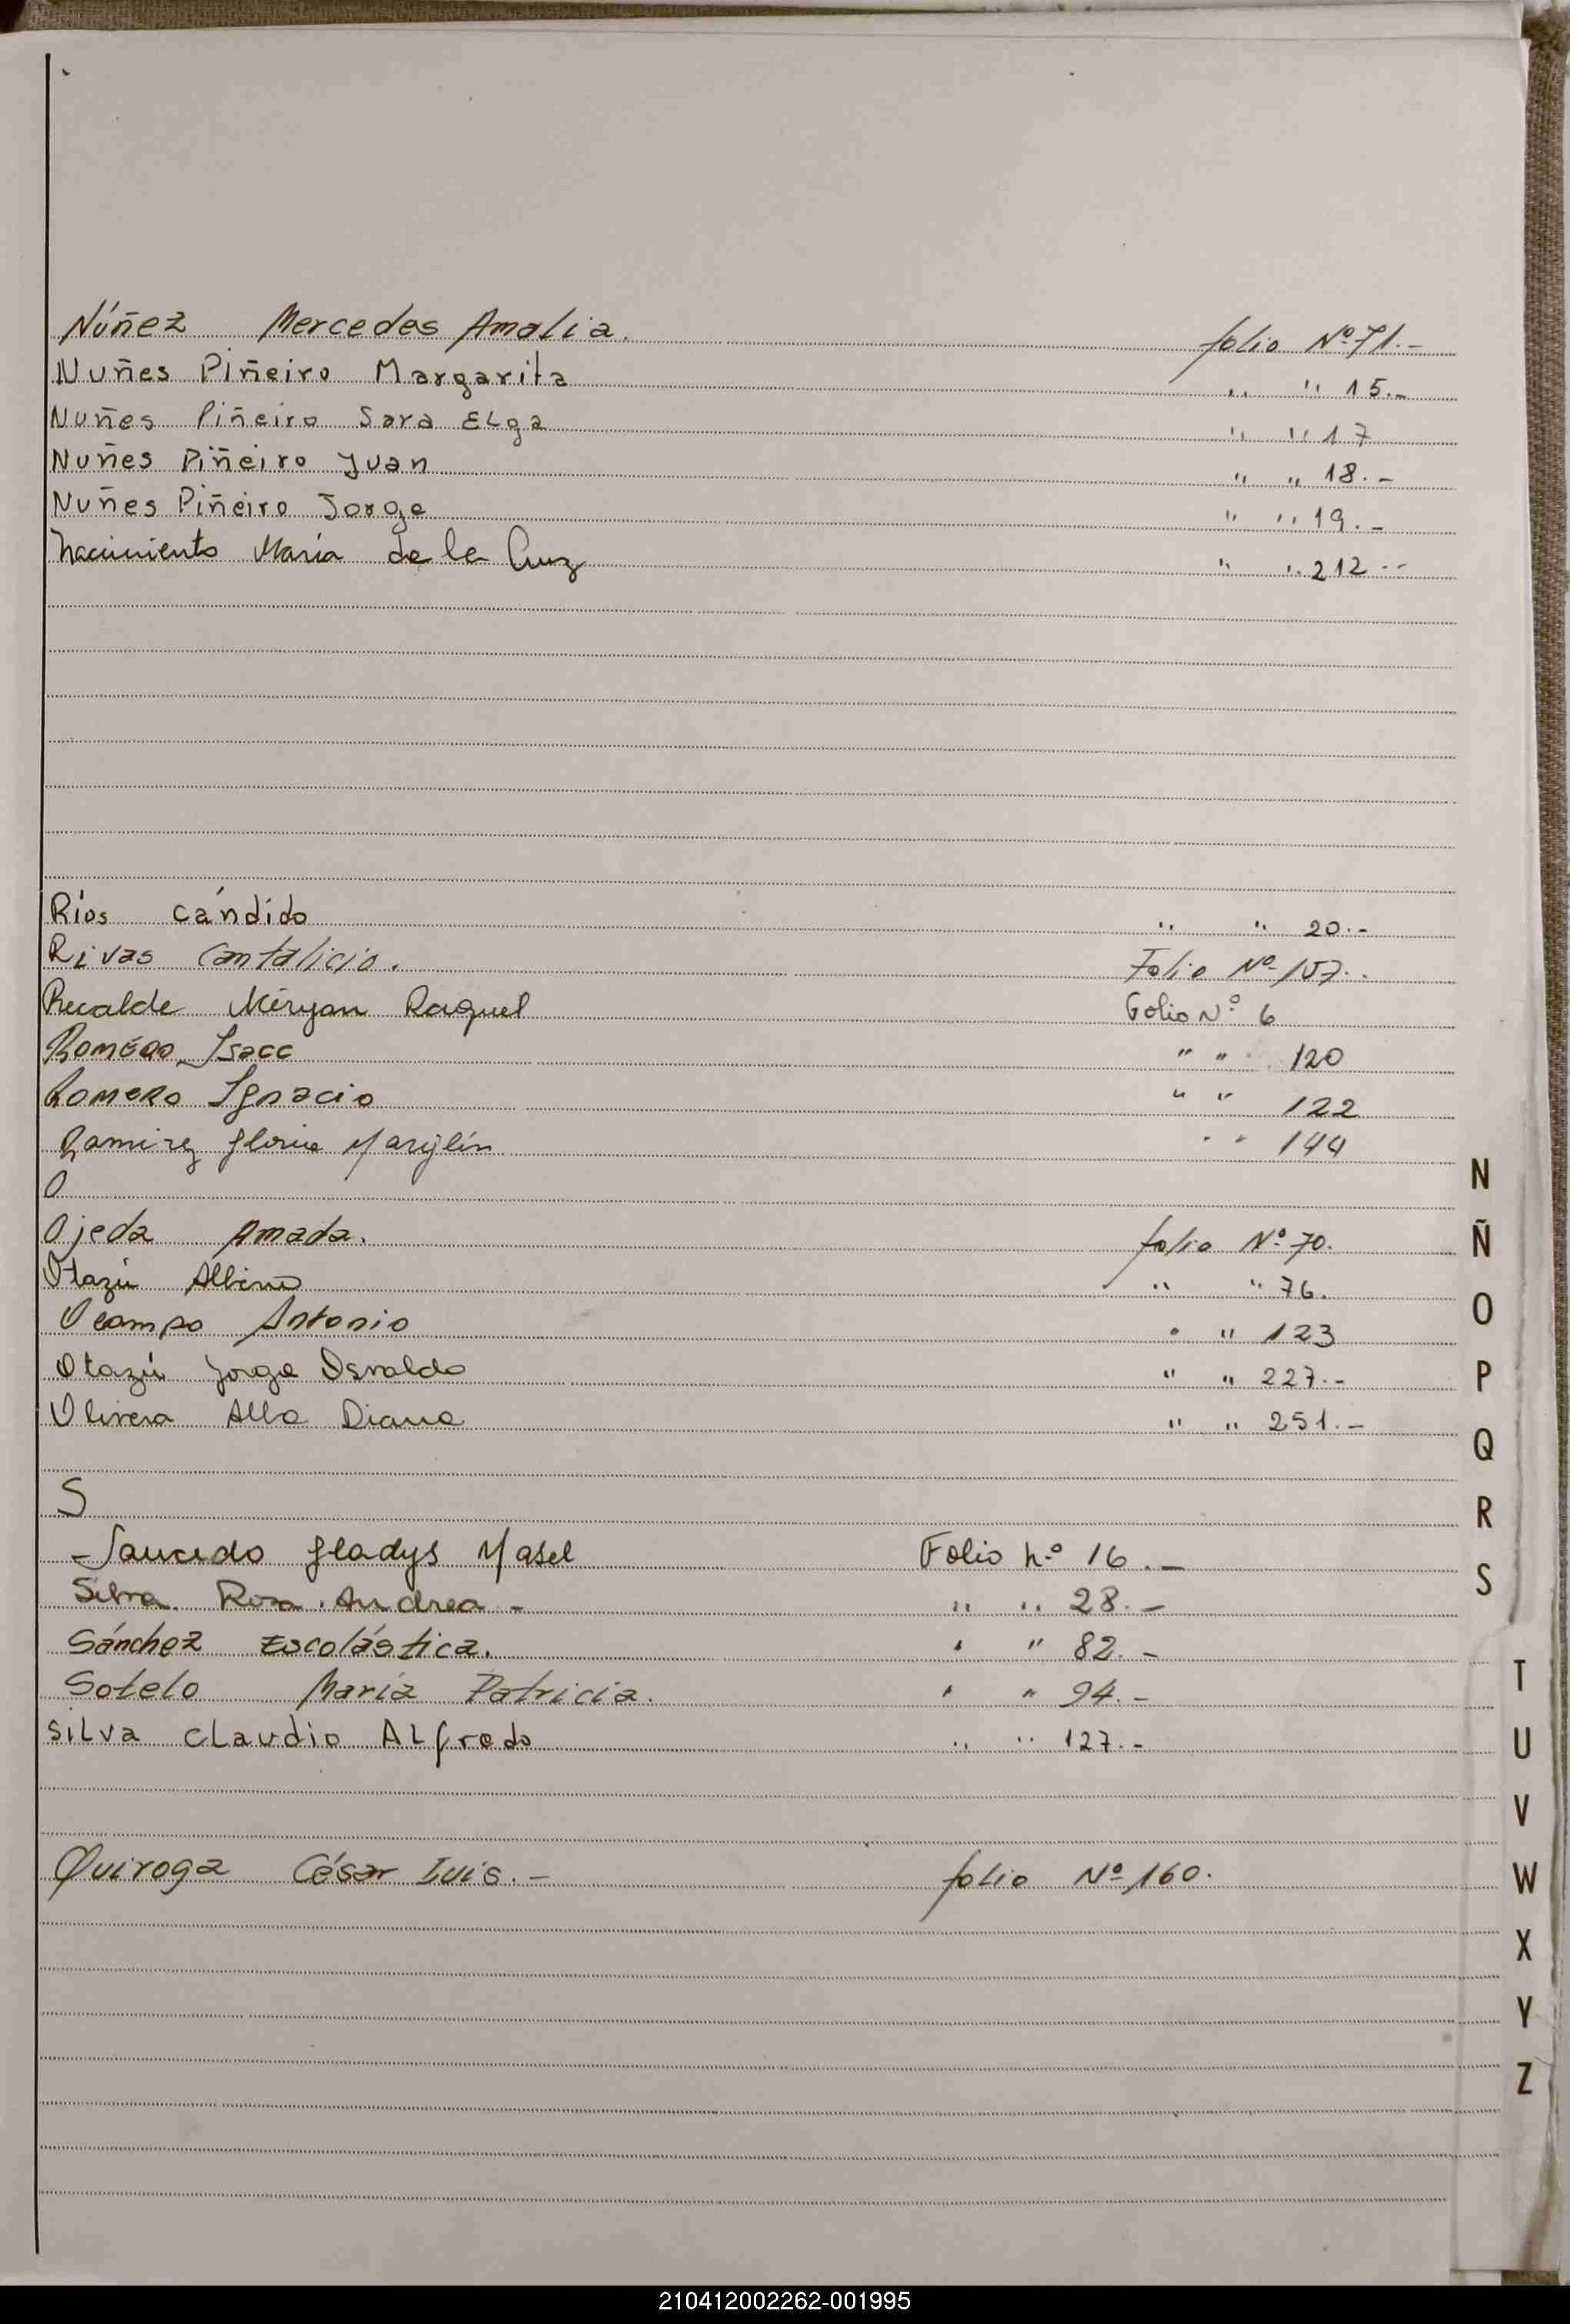 Núñez Mercedes Amalia. folio Nº 71.-
Nuñes Piñeiro Margarita " " 15.-
Nuñes Piñeiro Sara ELga " " 17
Nuñes Piñeiro Juan " " 18.-
Nuñes Piñeiro Jorge " " 19.-
Nacimiento María de la Cruz " " 212.--
Ríos cándido " " 20.-
Rivas Cantalicio. Folio Nº 157..
Recalde Miryan Raquel Folio Nº 6
Romero Isacc " " 120
Romero Ignacio " " 122
Ramirez Gloria Marylin " " 144
O
Ojeda Amada. folio Nº 70.
Otazú Albino " " 76.
Ocampo Antonio " " 123
Otazú Jorge Osvaldo " " 227.-
Olivera Alba Diana " " 251.-
S
-Saucedo Gladys Mabel Folio Nº 16.-
Silva Rosa Andrea - " " 28.-
Sánchez Escolástica. " " 82.-
Sotelo María Patricia. " " 94.-
SiLva cLaudio ALfredo " " 127.-
Quiroga César Luis.- folio Nº 160.
N
Ñ
O
P
Q
R
S
T
U
V
W
X
Y
Z
210412002262-001995